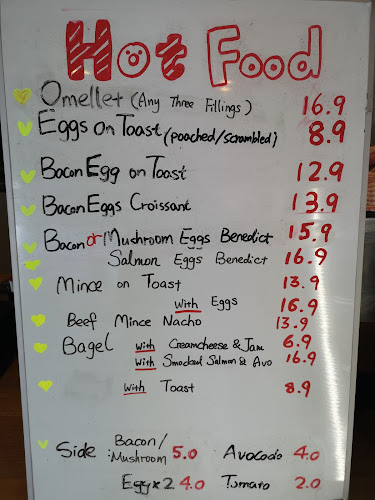 Hot Food
Omellet (Any Three Fillings) 16.9
Eggs on Toast (poached/scrambled) 8.9
Bacon Egg on Toast 12.9
Bacon Eggs Croissant 13.9
Bacon or Mushroom Eggs Benedict 15.9
Salmon Eggs Benedict 16.9
Mince on Toast 13.9
with Eggs 16.9
Beef Mince Nacho 13.9
Bagel with Creamcheese & Jam 6.9
with Smocked Salmon & Avo 16.9
with Toast 8.9
Side Bacon/
Mushroom 5.0 Avocado 4.0
Egg x 2 4.0 Tomato 2.0